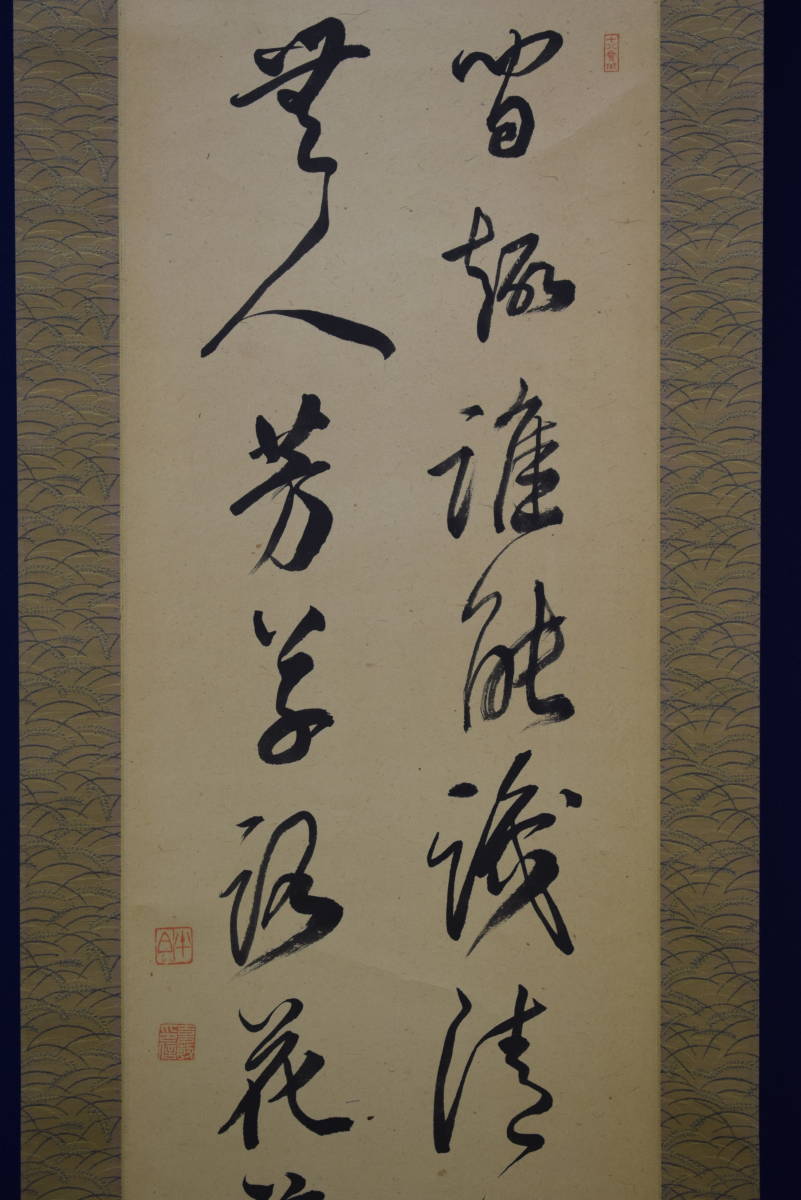 間趣誰能識清
無人芳草路花